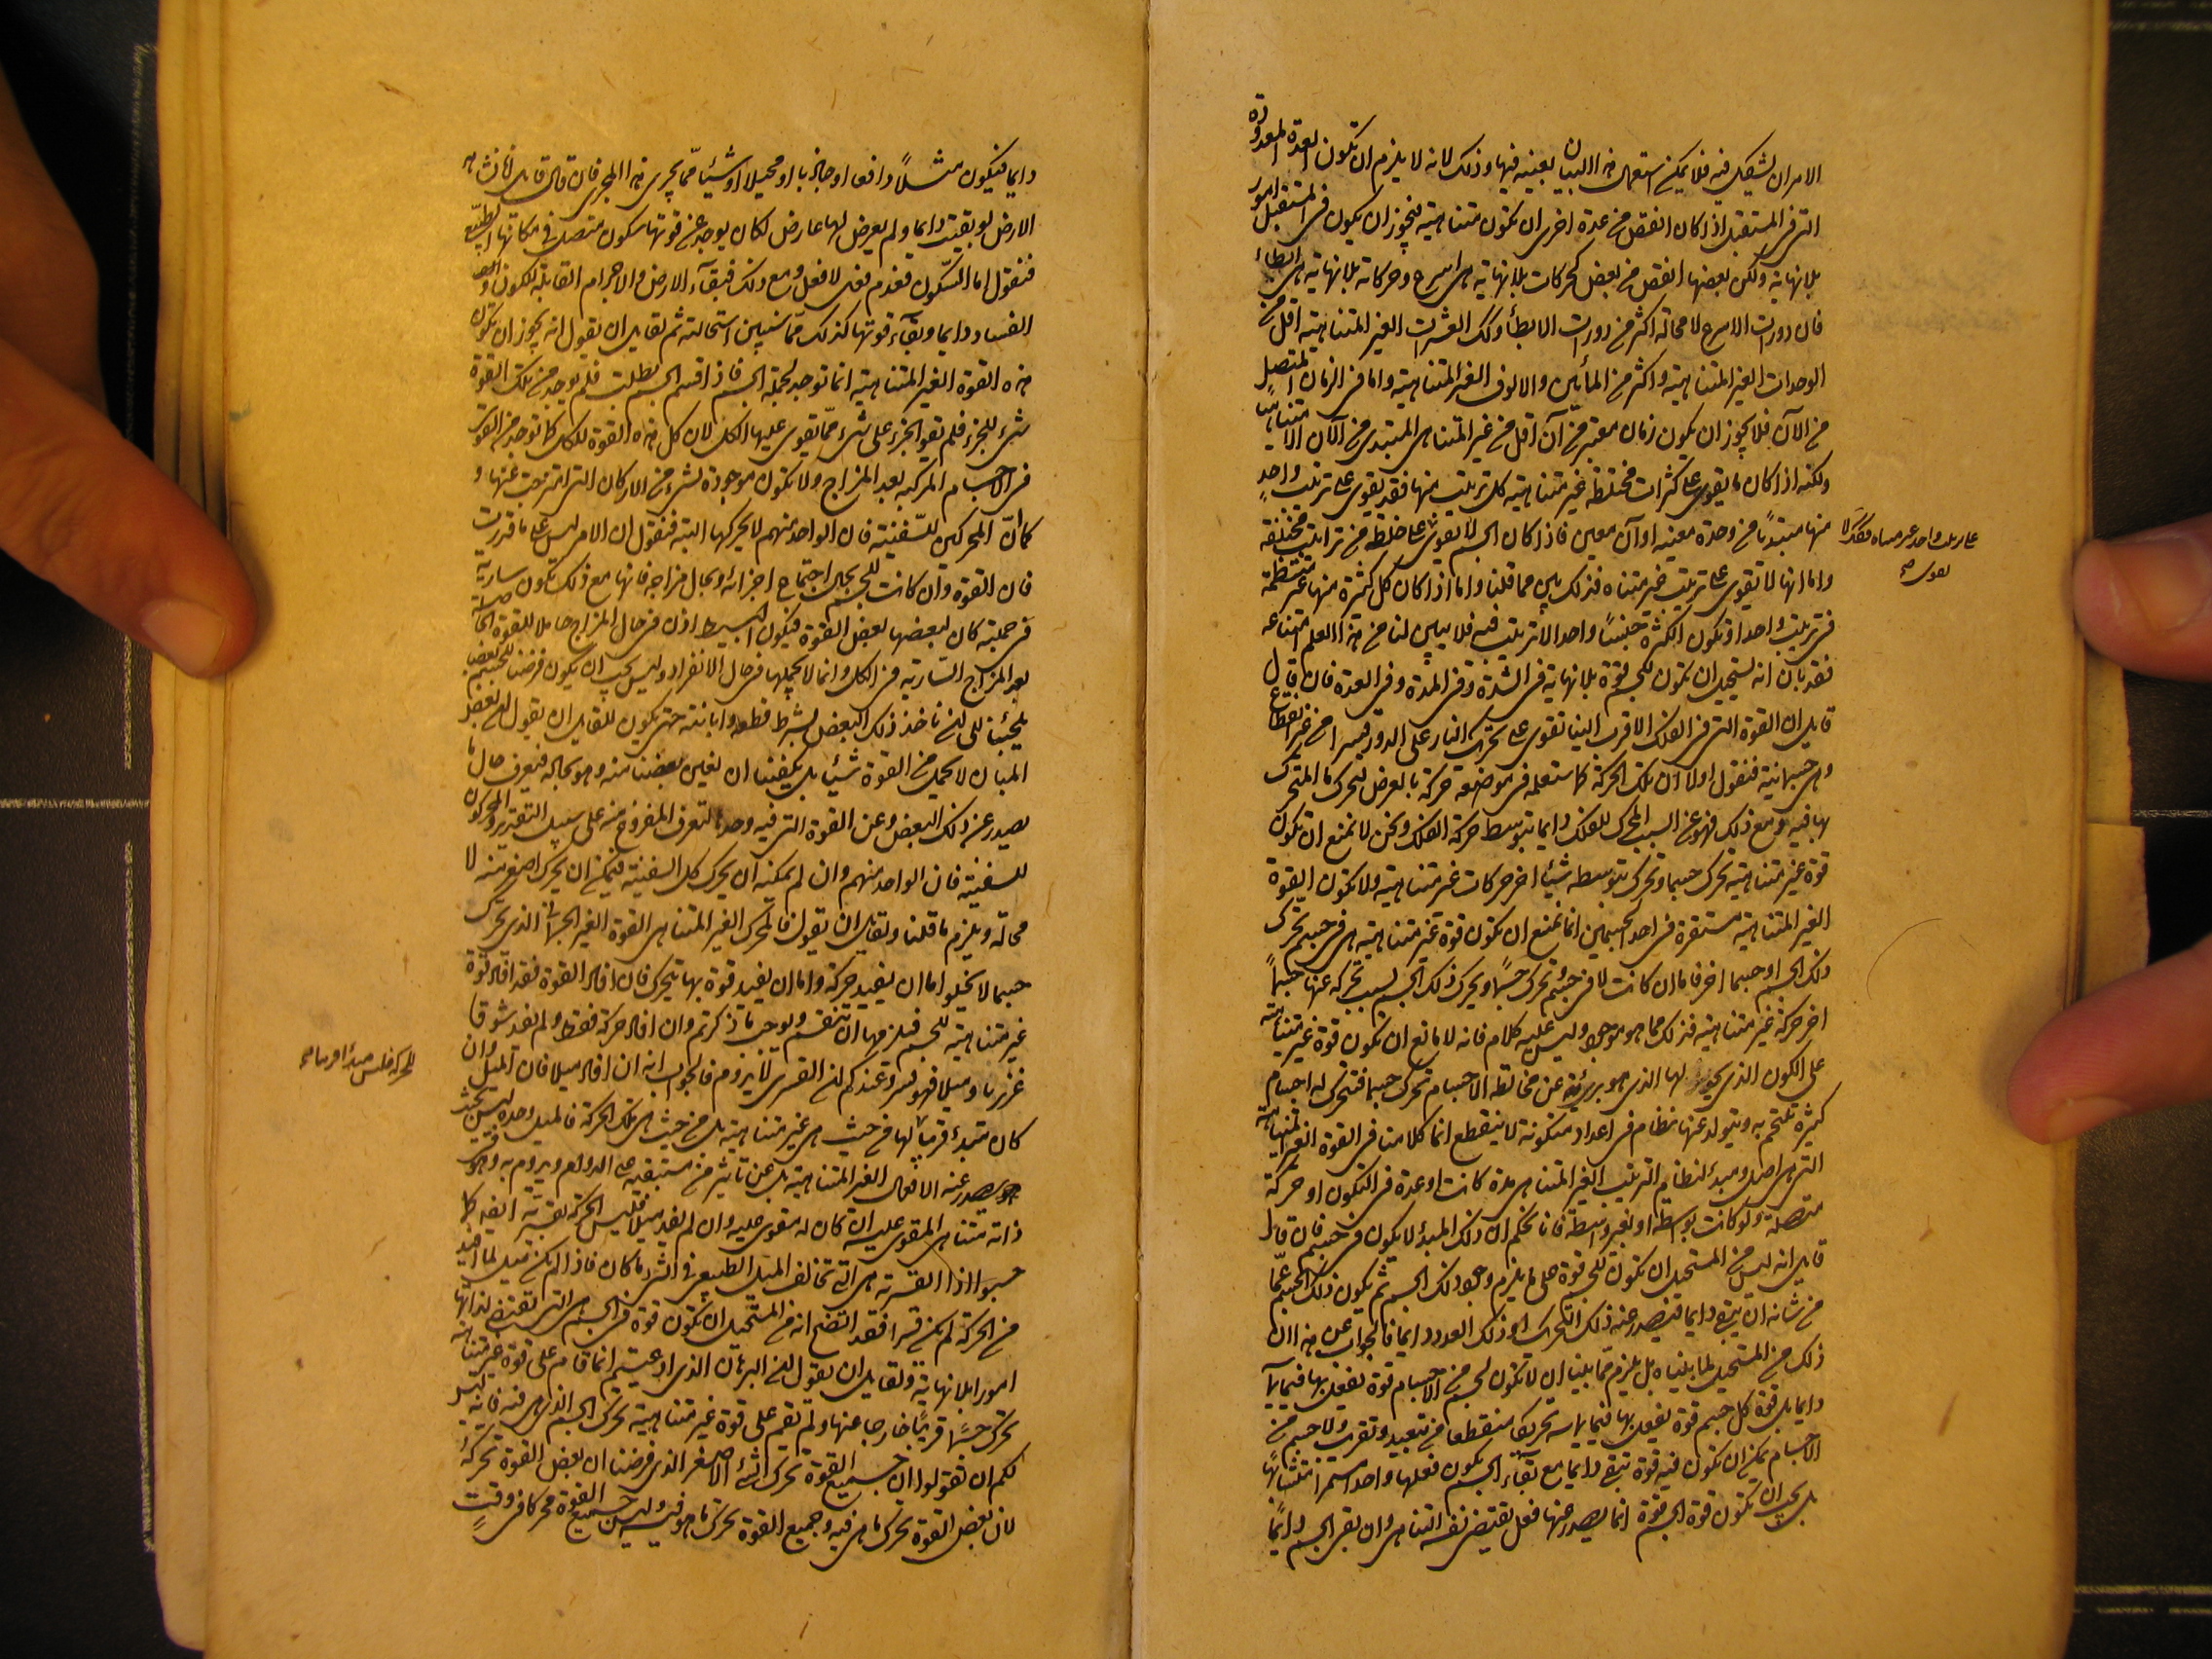 الامر ان يشكل فيه فلا يمكن استعمال هذا البيان بعينه فيها وذلك لانه لا يلزم ان تكون العدة المعدودة
التى فى المستقبل اذا كان انقص من عدة اخرى ان تكون متناهية فيجوز ان يكون فى المستقبل امور
بلا نهاية ولكن بعضها انقص من بعض كحركات بلا نهاية هى اسرع وحركات بلا نهاية هى ابطاء
فان دورات الاسرع لا محالة اكثر من دورات الابطأ وكذلك العشرات الغير المتناهية اقل من
الوحدات الغير المتناهية واكثر من المأيين والالوف الغير المتناهية واما فى الزمان المتصل
من الآن فلا يجوز ان يكون زمان معتبر من آن اقل من غير المتناهى المبتدى من الآن الا متناهيا
ولكنه اذا كان ما يقوى على كثرات مختلطة غير متناهية كل ترتيب منها فقد يقوى على ترتيب واحد
منها مبتديا من وحدة معينه او آن معين فاذا كان الجسم لا يقوى على خلط من تراتيب مختلفة
على ترتيب واحد غير متناه فقد لا
يقوى صح
واما انها لا تقوى على ترتيب غير متناه فذلك بين مما قلنا واما اذا كان كل كثرة منها غير منتظمة
فى ترتيب واحد او تكون الكثرة جنسا واحدا لا ترتيب فيه فلا يبين لنا من هذا العلم امتناعه
فقد بان انه يستحيل ان تكون لجسم قوة بلا نهاية فى الشدة وفى المدة وفى العدة فان قال
قايل ان القوة التى فى الفلك الاقرب الينا تقوى على تحريك النار على الدور قسرا من غير انقطاع
وهى جسمانية فنقول اولا ان تلك الحركة كما ستعلمه فى موضعه حركة بالعرض لتحرك ما المتحرك
بها فيه ومع ذلك فهو عن السبب المحرك للفلك دايما بتوسط حركة الفلك ونحن لا نمنع ان تكون
قوة غير متناهية تحرك جسما وتحرك بتوسطه شيأ اخر حركات غير متناهية ولا تكون القوة
الغير المتناهية مستقرة فى احد الجسمين انما نمنع ان تكون قوة غير متناهية هى فى جسم تحرك
ذلك الجسم او جسما اخر فاما ان كانت لا فى جسم تحرك جسما ويحرك ذلك الجسم بسبب تحركه عنها جسما
اخر حركة غير متناهية فذلك مما هو موجود وليس عليه كلام فانه لا مانع ان تكون قوة غير متناهية
على الكون الذى يجوز لها الذى هو برئة عن مخالطة الاجسام تحرك جسما فتحرك له اجسام
كثيرة تلتحم به ويتولد عنها نظام فى اعداد متكونة لا ينقطع انما كلامنا فى القوة الغير المتناهية
التى هى اصل ومبدء لنظام الترتيب الغير المتناهى مدة كانت او عدة فى التكون او حركة
متصلة ولو كانت بواسطة او بغير واسطة فانا نحكم ان ذلك المبدء لا يكون فى جسم فان قال
قايل انه ليس من المستحيل ان تكون للجسم قوة على ما يلزم وجود ذلك الجسم ثم يكون ذلك الجسم مما
من شانه ان يبقى دايما فتصدر عنه ذلك التحريك او ذلك العدد دايما فالجواب عن هذا ان
ذلك من المستحيل لما بيناه بل يلزم مما بينا ان لا تكون لجسم من الاجسام قوة تفعل بها فيما
دايما بل قوة كل جسم قوة يفعل بها فيما يماسه تحريكا منقطعا من تبعيد وتقريب ولا جسم من
الاجسام يمكن ان تكون فيه قوة تبقى دايما مع بقاء الجسم يكون فعلها واحدا مستمرا متشابها
بل يجب ان تكون قوة الجسم قوة انما يصدر عنها فعل يقتضى نفسه التناهى وان بقى الجسم دايما
دايما فيكون مثلا دافعا او جاذبا او محيلا او شيئا مما يجرى هذا المجرى فان قال قايل
الارض لو بقيت دايما ولم يعرض لها عارض لكان يوجد عن قوتها سكون متصل فى مكانها الطبيعى
فنقول اما السكون فعدم فعل لا فعل ومع ذلك فبقآء الارض والاجرام القابلة للكون و
الفساد دايما وبقاء قوتها كذلك مما سنبين استحالته ثم لقايل ان يقول انه يجوز ان تكون
هذه القوة الغير المتناهية انما توجد لجملة الجسم فاذا قسم الجسم بطلت فلم يوجد من تلك القوة
شىء للجزء فلم يقو الجزء على شىء مما يقوى عليها الكل لان كل هذه القوة للكل كما توجد من القوى
فى الاجسام المركبة بعد المزاج ولا تكون موجودة لشىء من الاركان التى امتزجت عنها و
كما ان المحركين للسفينة فان الواحد منهم لا يحركها البتة فنقول ان الامر ليس على ما قدرت
فان القوة وان كانت للجسم بحال اجتماع اجزائه وبحال مزاجه فانها مع ذلك تكون سارية
فى جملته كان لبعضها بعض القوة فيكون البسيط اذن فى حال المزاج حاملا للقوة الحاصلة
بعد المزاج السارية فى الكل وانما لا يحملها فى حال الانفراد وليس يجب ان يكون فرضنا للجسم بعضا
يلجئنا الى ان ناخذ ذلك البعض بشرط قطعه وابانته حتى يكون للقايل ان يقول ان بعض
المبان لا يحمل من القوة شيئا بل يكفينا ان نعين بعضا منه وهو بحاله فنعرف حال ما
يصدر عن ذلك البعض وعن القوة التى فيه وحدها التعرف المفروغ منه على سبيل التقدير والمحركون
للسفينة فان الواحد منهم وان لم يمكنه ان يحرك كل السفينة فيمكن ان يحرك اصغر منه لا
محالة ويلزم ما قلنا ولقايل ان يقول فالمحرك الغير المتناهى القوة الغير الجسمانى الذى يحرك
جسما لا يخلو اما ان يفيد حركة واما ان يفيد قوة بها يتحرك فان افاد القوة فقد افاد قوة
غير متناهية للجسم فيلزمها ان تنقسم ويوجب ما ذكرتم وان افاد حركة فقط ولم يفد شوقا
غريزيا وميلا فهو قسر وعندكم ان القسرى لا يدوم فالجواب انه ان افاد ميلا فان الميل وان
للحركة فليس مبدأ
كان مبدء قريبا لها من حيث هى غير متناهية بل من حيث هى تلك الحركة فالميل وحده ليس بحيث
يصدر عنه الافعال الغير المتناهية بل عن تاثير من مستبقيه على الدوام ويدوم به وهو فى
ذاته متناهى المقوى عليه ان كان له مقوى عليه وان لم يفد ميلا فليس الحركة بقسرية ايضا كما
حسبوا اذ القسرية هى التى تخالف الميل الطبيعى فى الشىء ما كان فاذا لم يكن ميل لما افيد
من الحركة لم يكن قسرا فقد اتضح انه من المستحيل ان يكون قوة فى الجسم هى التى تقتضى لذاتها
امورا بلا نهاية ولقايل ان يقول ان البرهان الذى ادعيتم انما قام على قوة غير متناهية
تحرك جسما قريبا خارجا عنها ولم تقم على قوة غير متناهية تحرك الجسم الذى هى فيه فانه ليس
لكم ان تقولوا ان جميع القوة تحرك الشىء الاصغر الذى فرضنا ان بعض القوة تحركه
لان بعض القوة تحرك ما هى فيه وجميع القوة تحرك ما هو فيه وليس جميع القوة محركا فى وقت